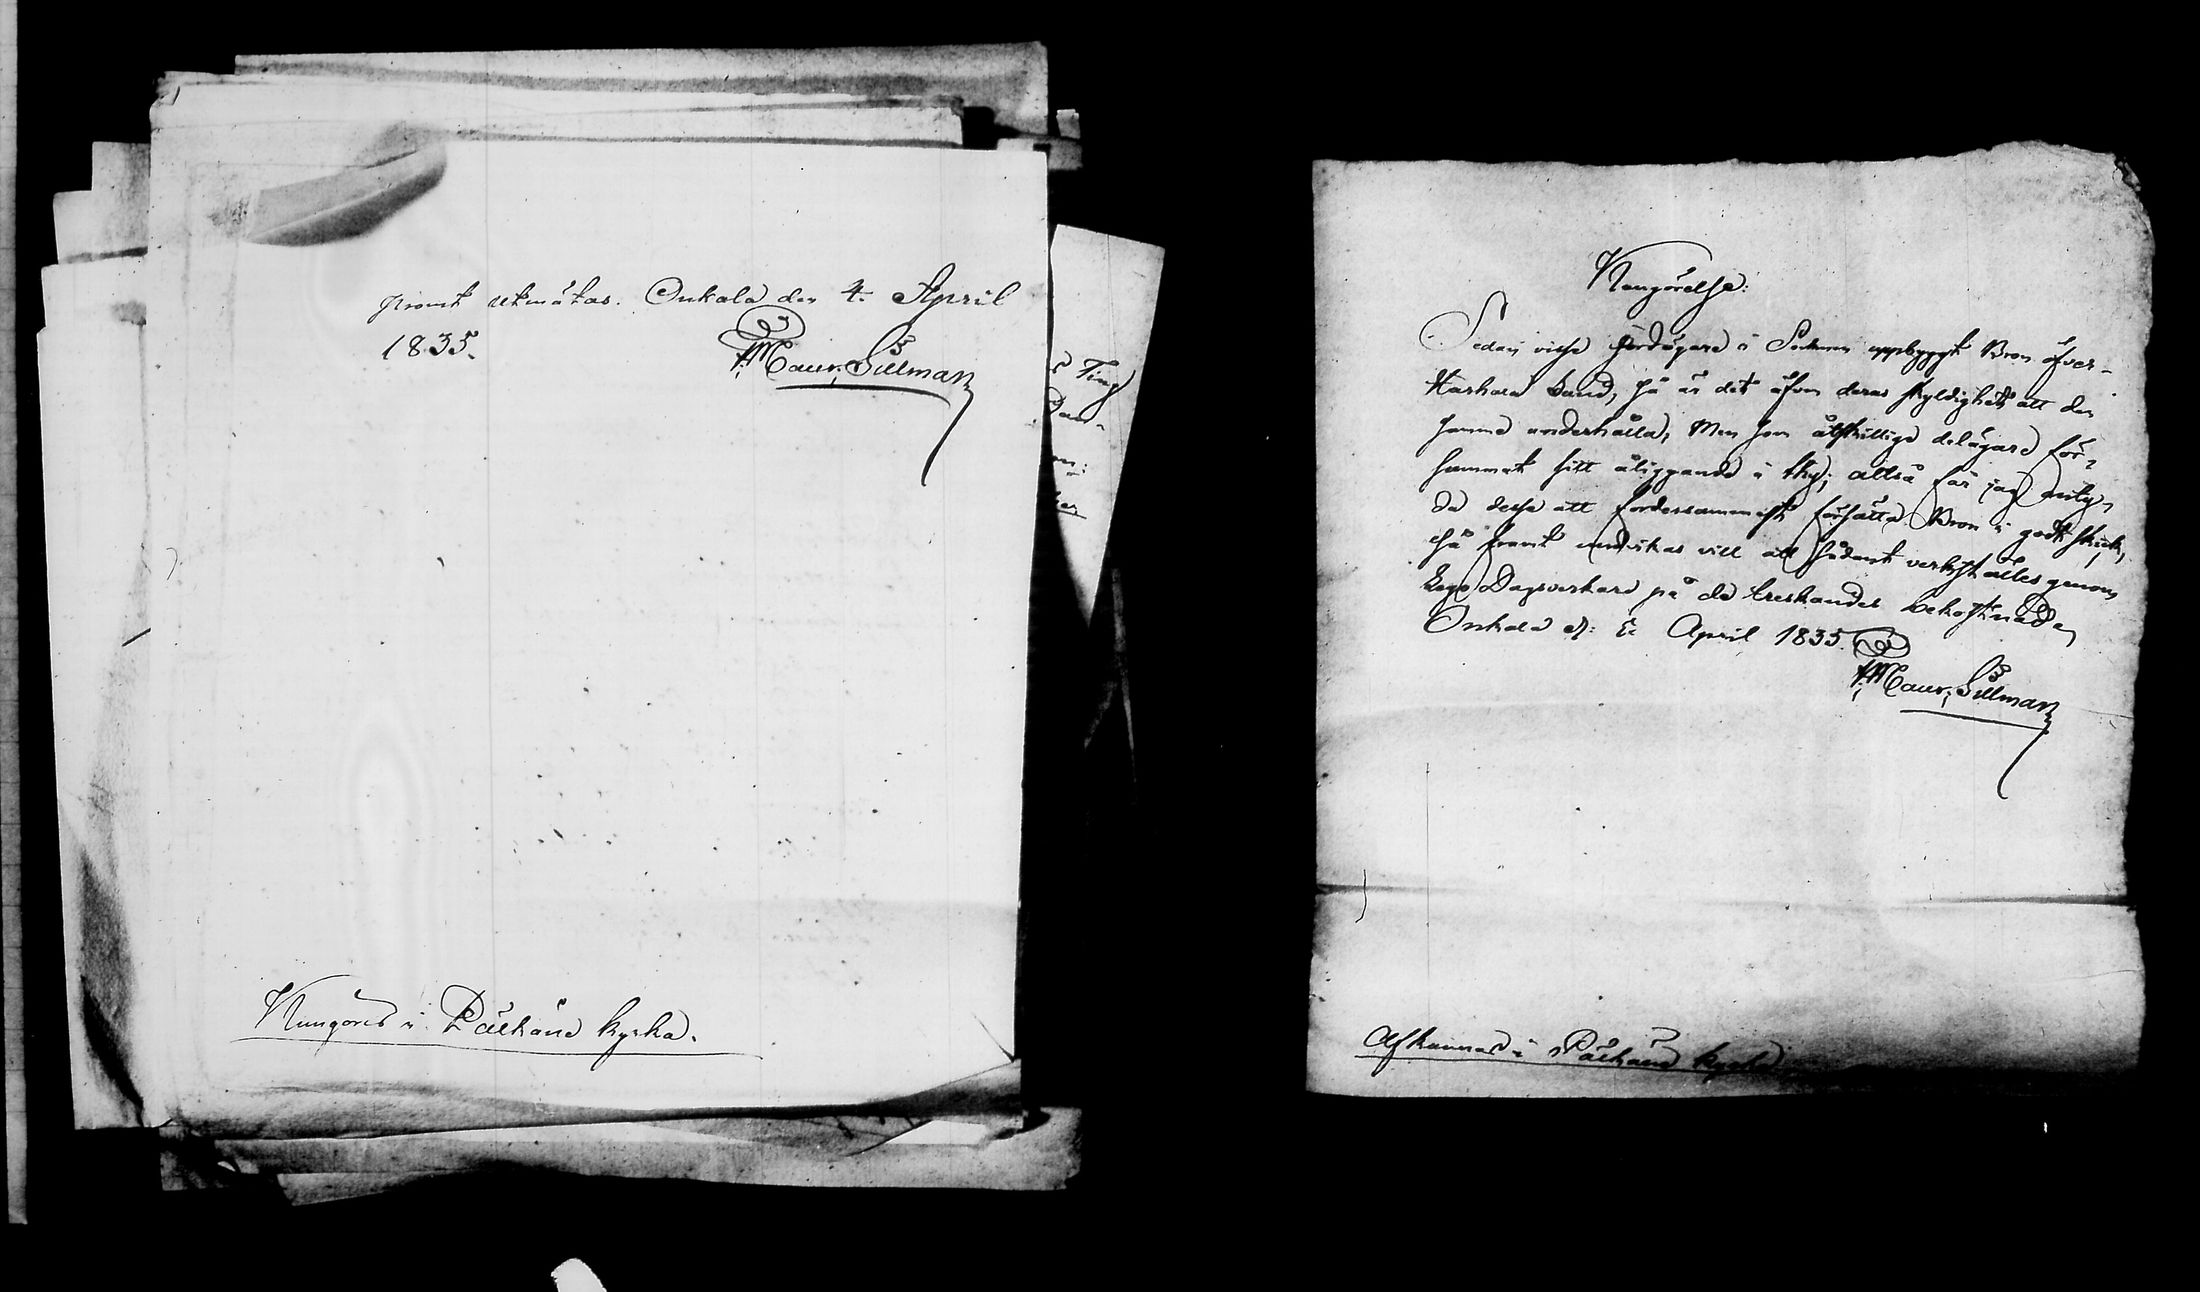 promt utmätas. Onkala den 4. April
1835.
Maur. Sillman
Kungöres i Pälkäne kyrka.
Ting
Kungörelse:
Sedan visse Jordägare i Socknen uppbyggt Bron öfver
Harhala Sund, så är det äfven deras skyldighet att den
samma underhålla, Men som åtskillige delägare för-
summat sitt åliggande i thy; altså får jag
da desse att fordersammast försätta Bron i godt skick,
så framt undvikas vill att sådant verkställes genom
Lego Dagsverkare på de treskandes bekostnad.
Onkala d. April 1835.
Maur. Sillman
Afkunnas i Pälkäne kyrka